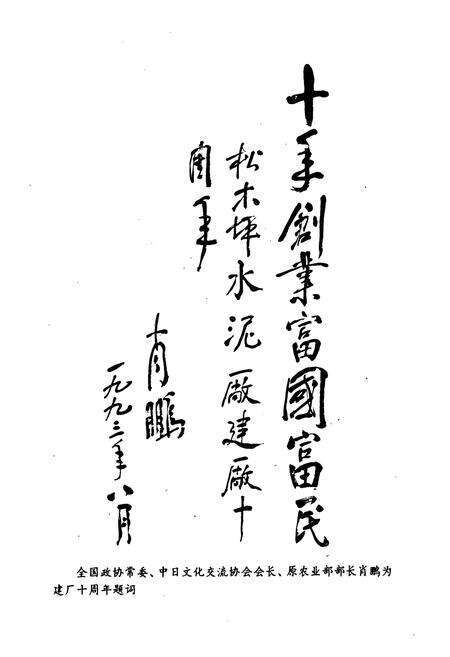 十年創業富國富民
松木坪水泥廠建廠十
周年
肖鹏
一九九三年八月
全国政协常委、中日文化交流协会会长、原农业部部长肖鹏为
建厂十周年题词